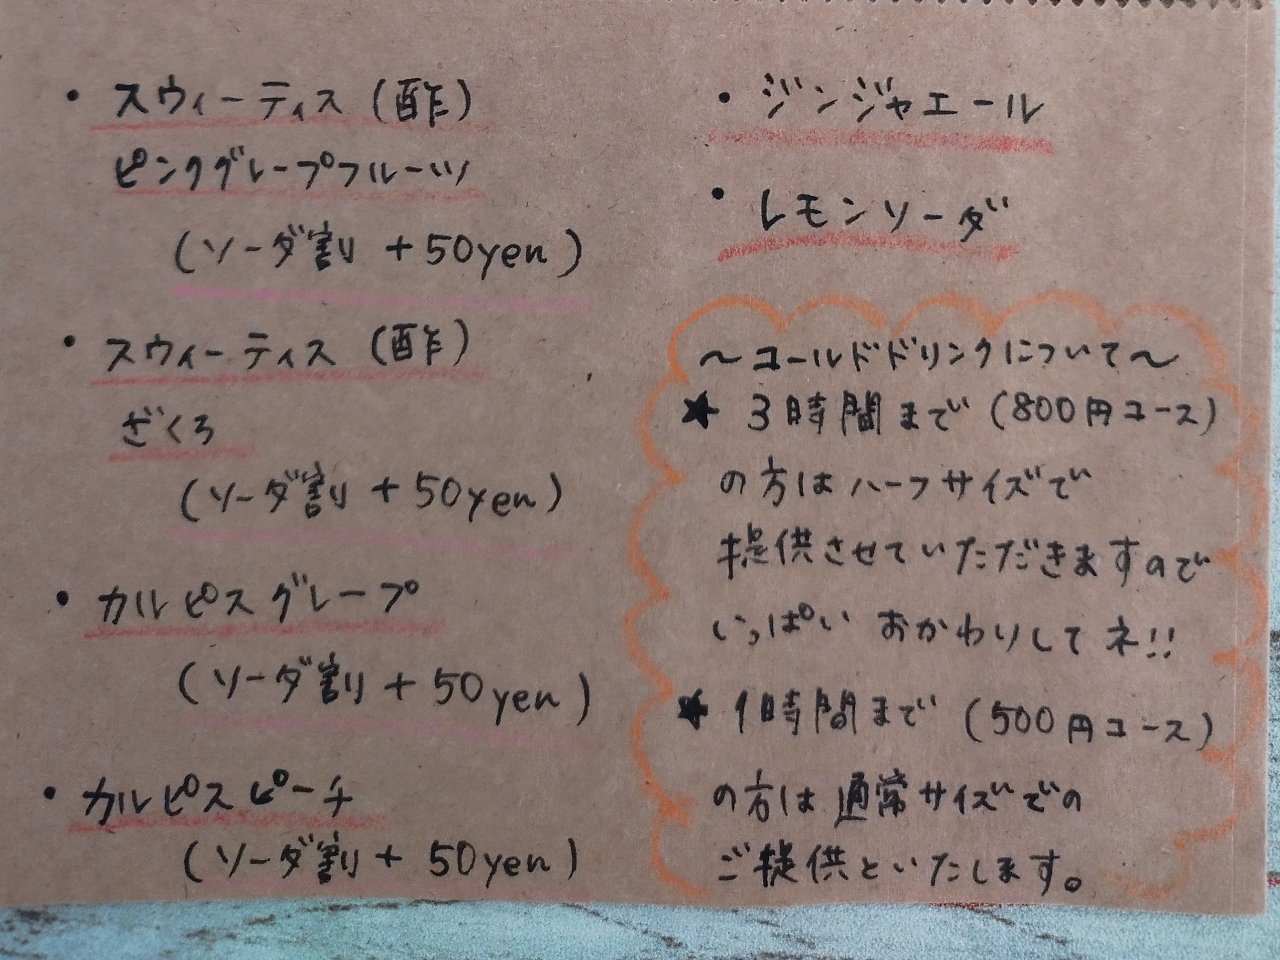 ・スウィーティス(酢)
ピンクグレープフルーツ
(ソーダ割り +50yen)
・スウィーティス(酢)
ざくろ
(ソーダ割り +50yen)
・カルピスグレープ
(ソーダ割り+50yen)
・カルピスピーチ
(ソーダ割り+ 50yen)
・ジンジャエール
・レモンソーダ
～コールドドリンクについて～
★ 3時間まで(800円コース)
の方はハーフサイズで
提供させていただきますので
いっぱい おかわりしてネ!!
★ 1時間まで (500円コース)
の方は通常サイズでの
ご提供といたします。